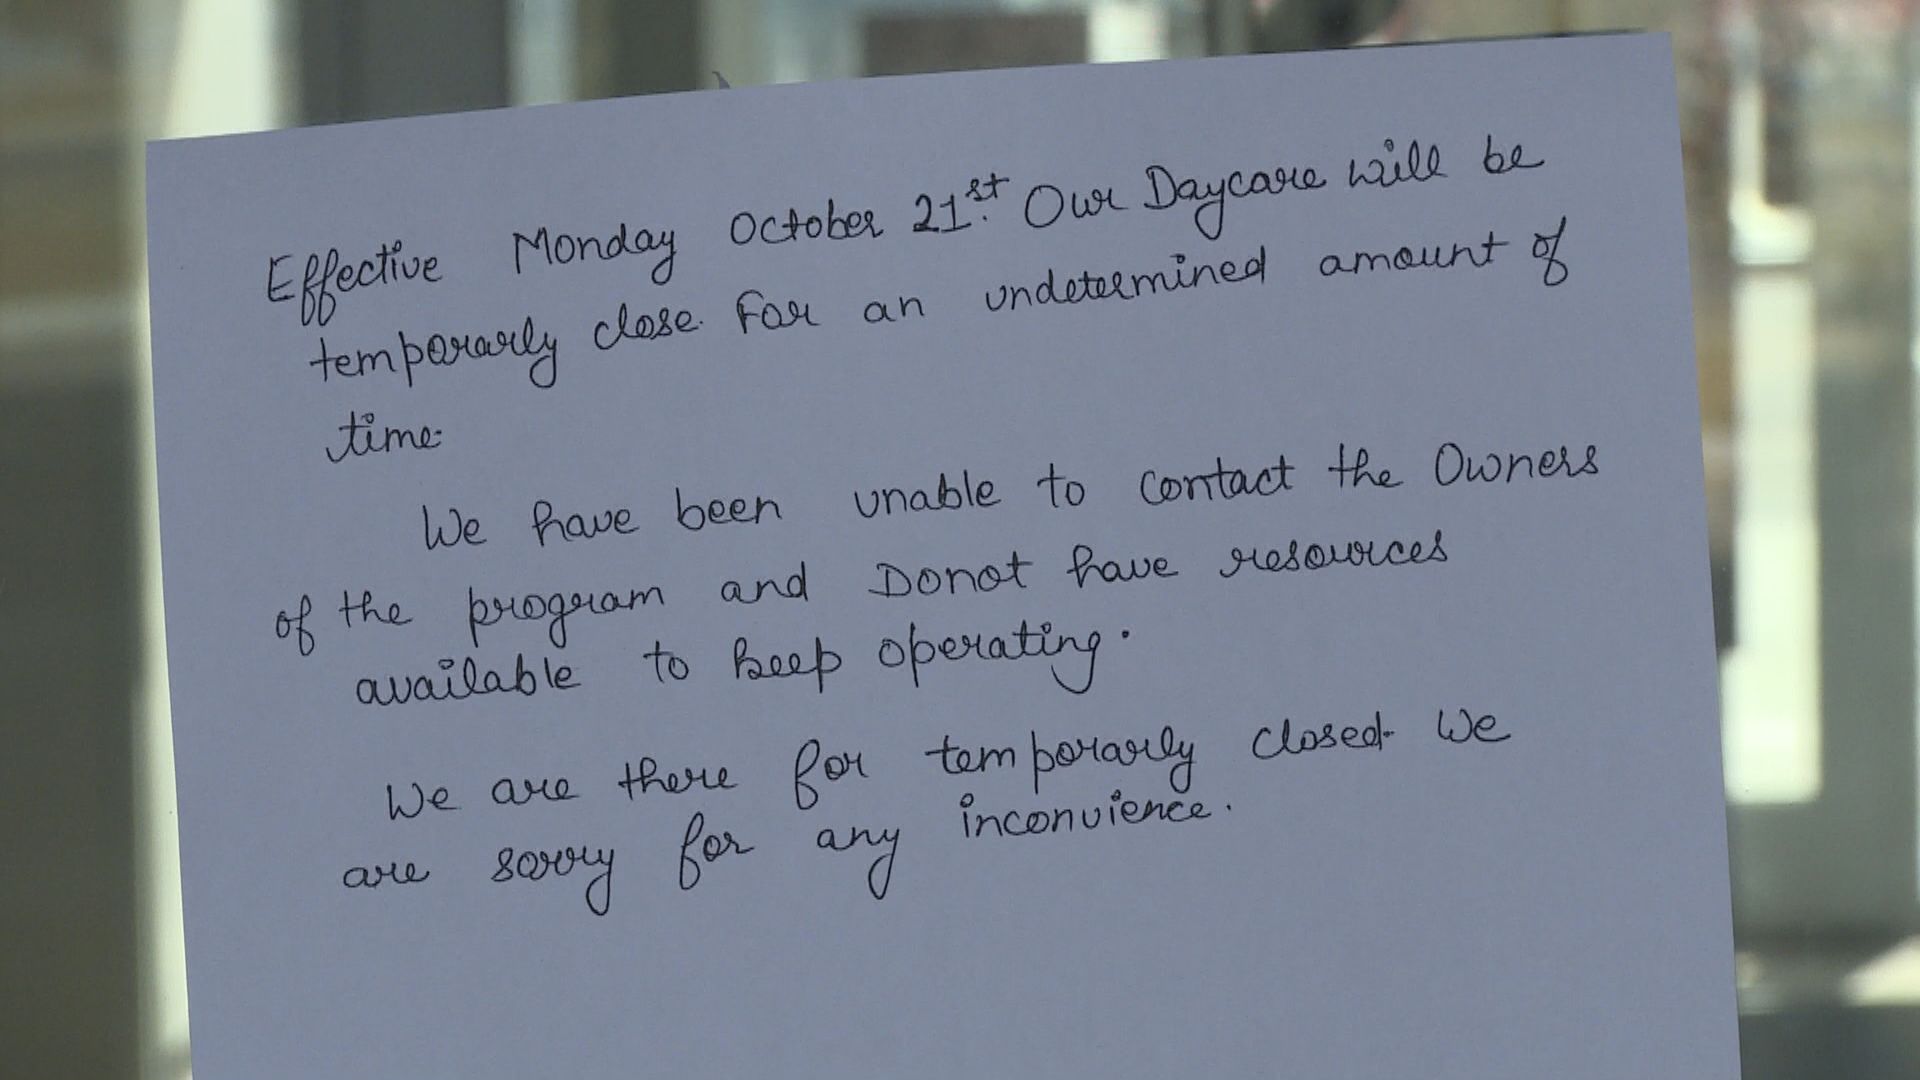 Effective Monday October 21st. Our Daycare will be
temporarly close. For an undetermined amount of
time.
We have been unable to contact the Owners
of the program and Donot have resources
available to keep operating.
We are there for temporarly closed. We
are sorry for any inconvience.